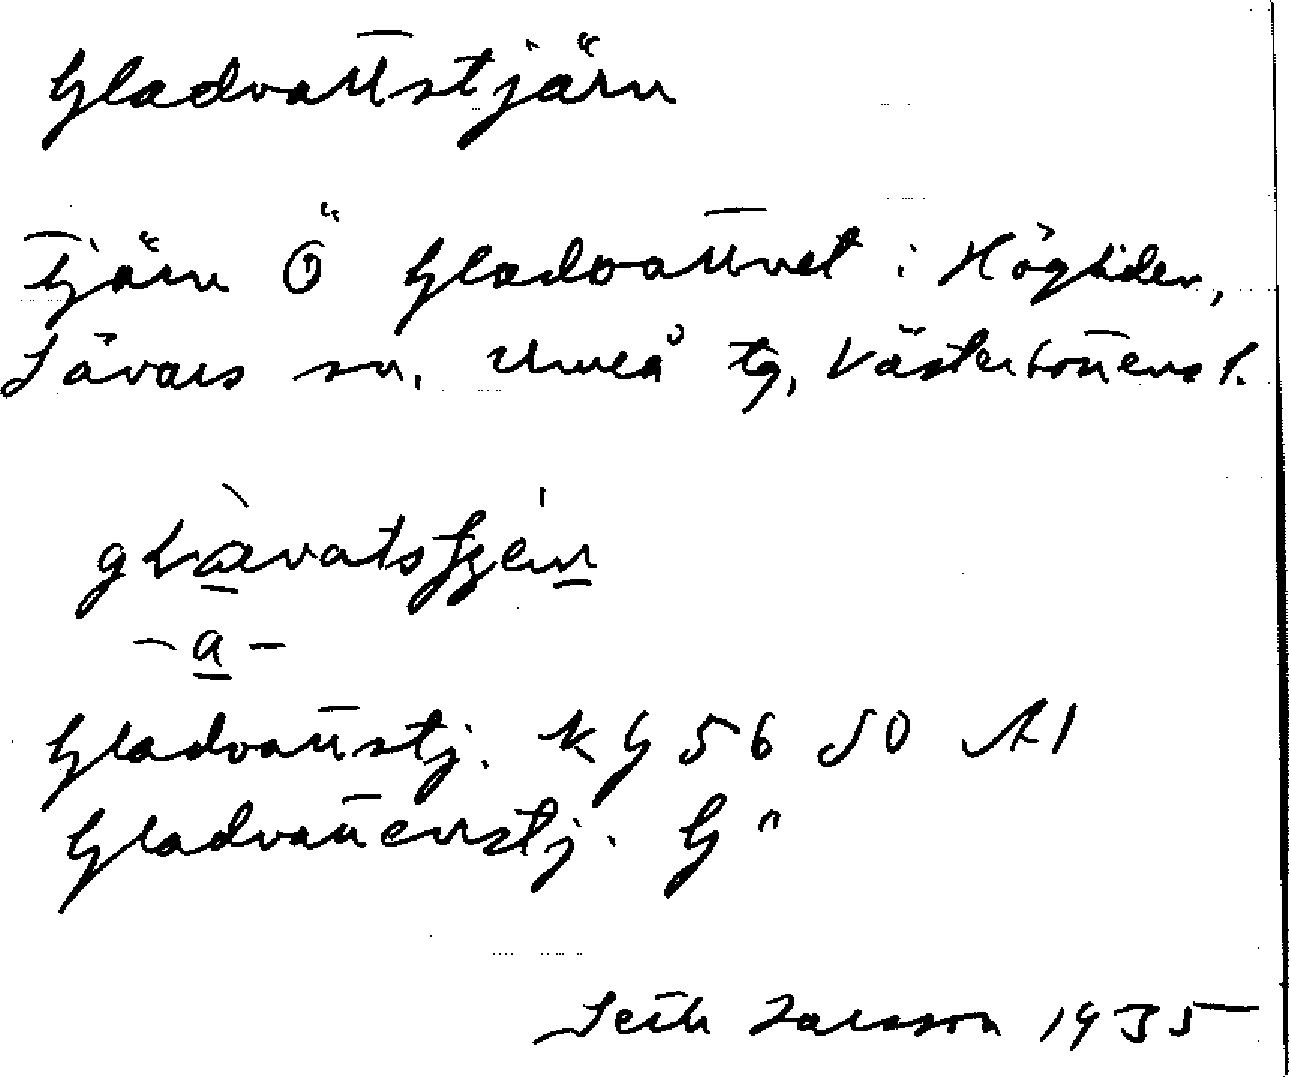 Gladvattstjärn
Tjärn Ö Gladvattnet i Högliden,
Sävars sn. Umeå tg, Västerbottens l.
-a-
Gladvattstj. KG 56 SO A1
Gladvattenstj. G "
Seth Larsson 1935